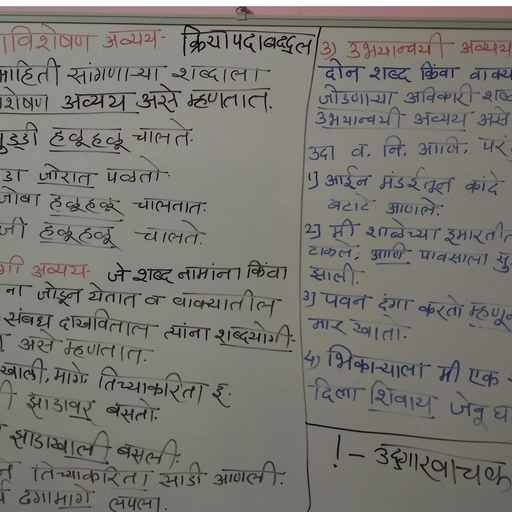 विशेषण अव्यय- क्रियापदाबद्दल
माहिती सांगणाऱ्या शब्दाला
अव्यय असे म्हणतात.
हळूहळू चालते.
जोरात पळतो.
हळूहळू चालतात.
हळूहळू चालते.
अव्यय- जे शब्द नामांना किंवा
ना जोडून येतात व वाक्यातील
संबंध दाखवितात त्यांना शब्दयोगी
असे म्हणतात.
खाली, मागे, तिच्याकरिता इ.
झाडावर बसतो.
झाडाखाली बसली.
तिच्याकरिता साडी आणली.
ढगामागे लपला.
3) उभयान्वयी अव्यय
दोन शब्द किंवा वाक्य
जोडणाऱ्या अविकारी शब्द
उभयान्वयी अव्यय असे
उदा व, नि, आणि, परं
1) आईने मंडईतून कांदे
बटाटे आणले.
2) मी शाळेच्या इमारतीत
टाकले, आणि पावसाला सु
झाली.
3) पवन दंगा करतो म्हणून
मार खातो.
4) भिकाऱ्याला मी एक
दिला शिवाय जेवू घा
! - उद्गारवाचक